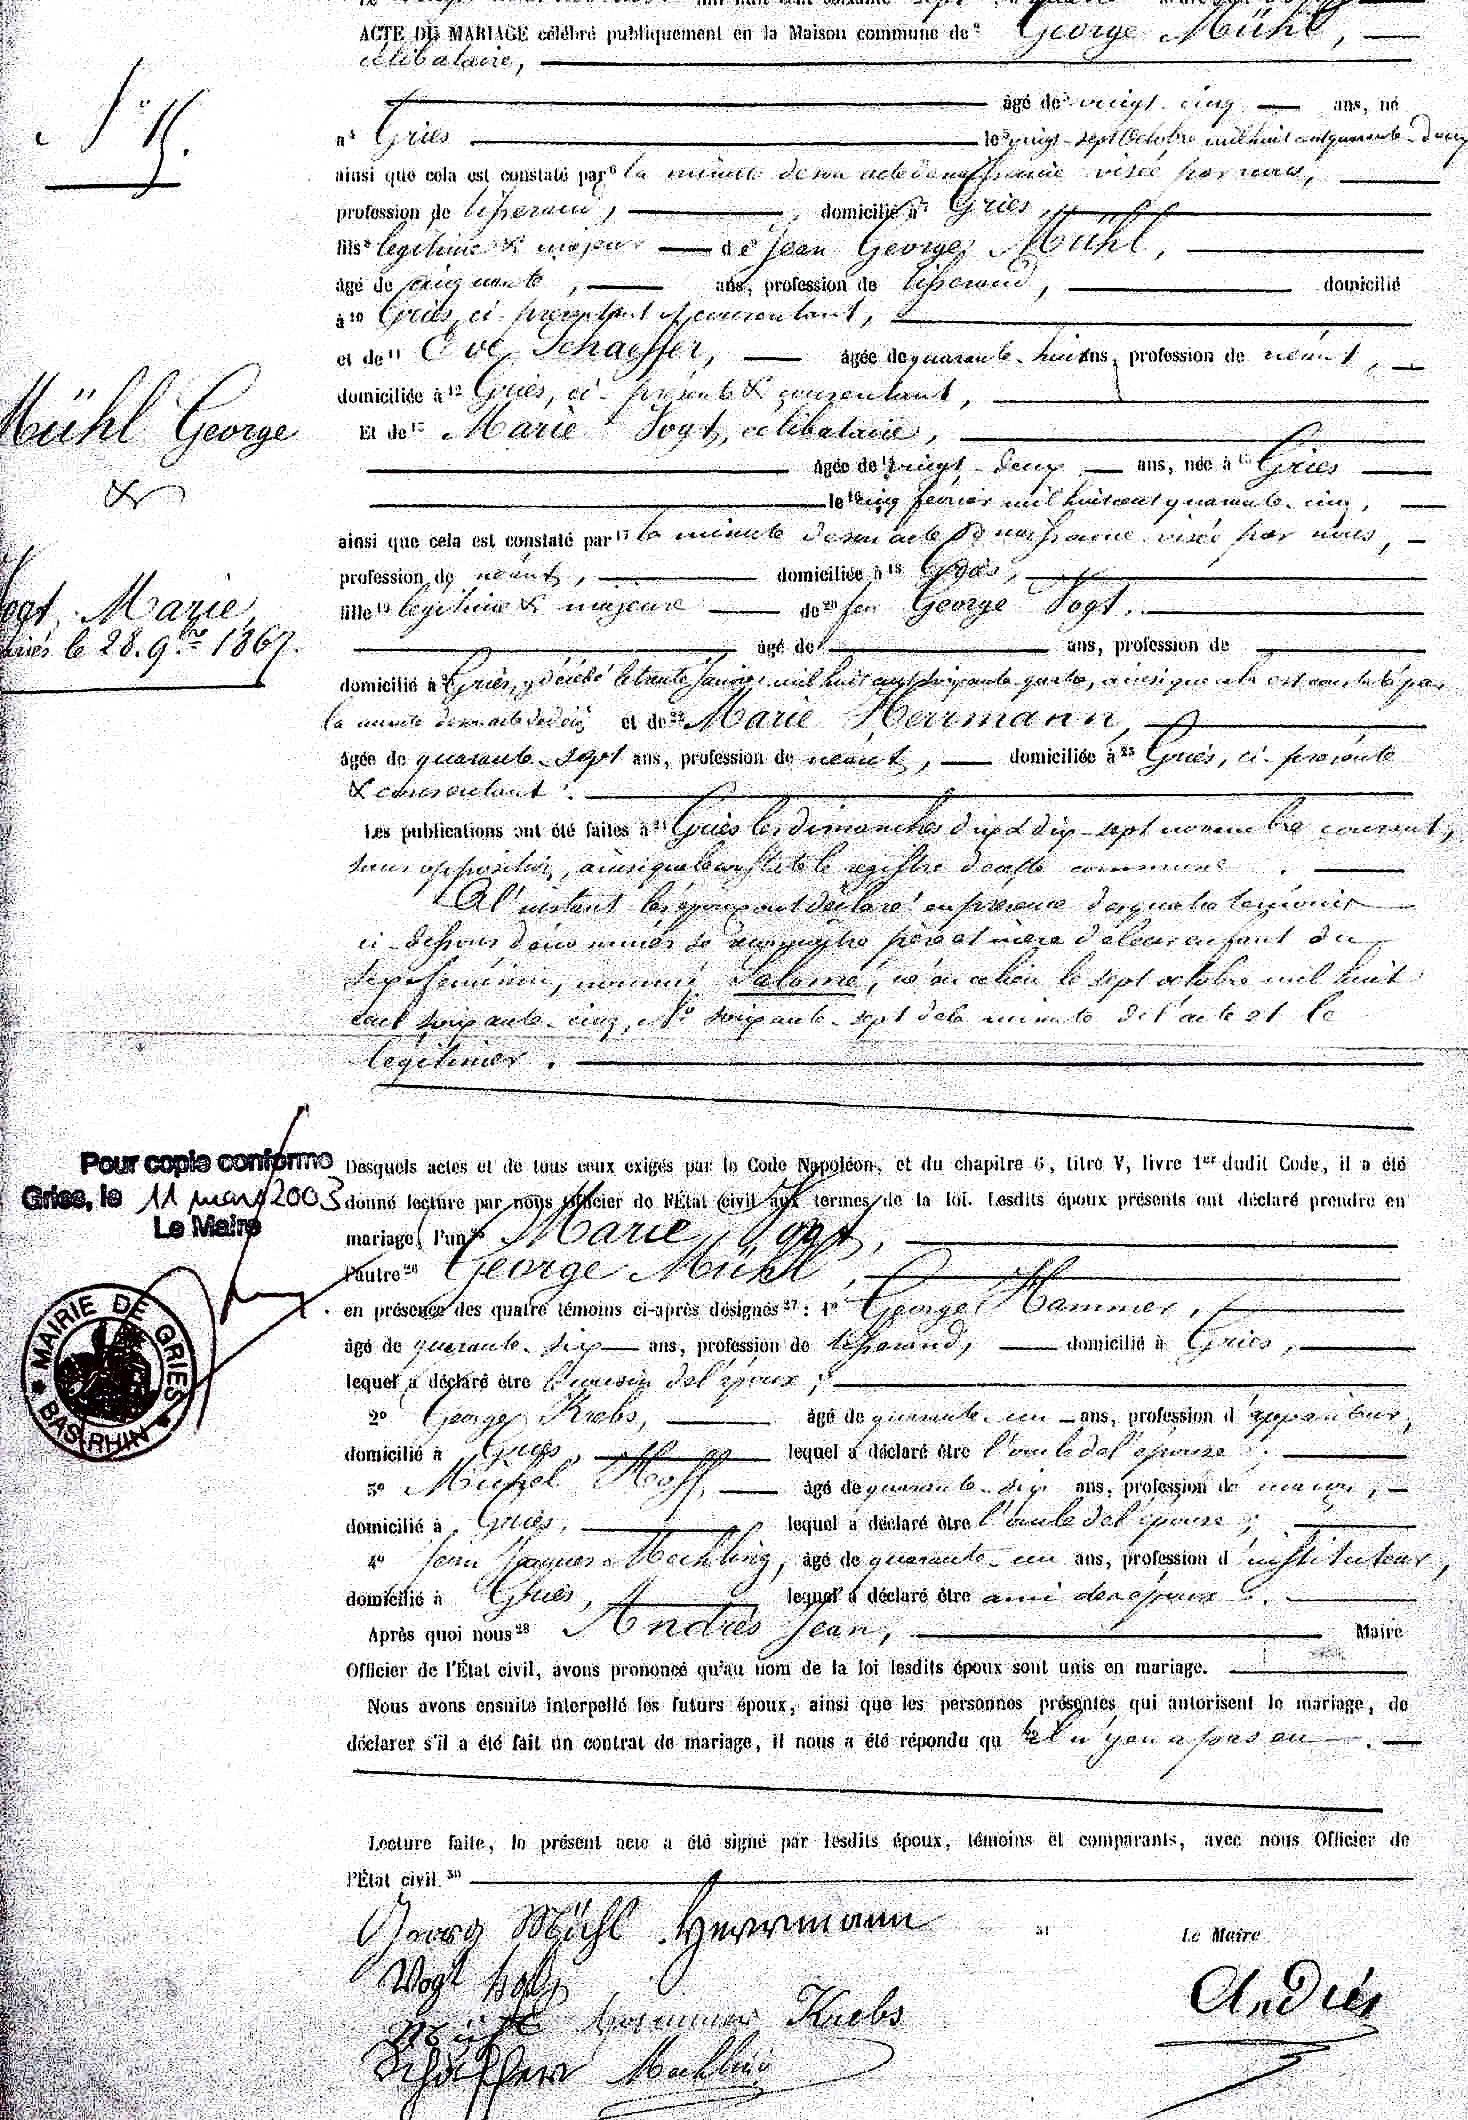 ACTE DE MARIAGE célébré publiquement en la Maison commune de George Mühl,
célibataire,
N° 15.
âgé de vingt cinq ans, né
à Gries le vingt-sept Octobre mil huit cent quarante-deux
ainsi que cela est constaté par la minute de son acte de naissance visée par nous,
profession de tisserand, domicilié à Gries,
fils légitime & majeur de Jean George Mühl,
âgé de cinquante, ans, profession de tisserand, domicilié
à Gries, ci-présent et consentant,
et de Eve Schaeffer, âgée de quarante-huit ans, profession de néant,
domiciliée à Gries, ci-présente & consentant,
Mühl George
&
Vogt Marie,
mariés le 28. 9bre 1867.
Et de Marie Vogt, célibataire,
âgée de vingt-deux ans, née à Gries
le cinq février mil huit cent quarante-cinq,
ainsi que cela est constaté par la minute de son acte de naissance visée par nous,
profession de néant, domiciliée à Gries,
fille légitime & majeure de feu George Vogt.
âgé de ans, profession de
domicilié à Gries, y décédé le trente Janvier mil huit cent soixante-quatre, ainsi que cela est constaté par
la minute de son acte de décès et de Marie Herrmann,
âgée de quarante-sept ans, profession de néant, domiciliée à Gries, ci-présente
& consentant.
Les publications ont été faites à Gries les dimanches dix & dix-sept novembre courant,
sans opposition, ainsi que le constate le registre de cette commune.
A l'instant les époux ont déclaré en présence des quatre témoins
ci-dessous dénommés se reconnaître père et mère d'un enfant du
sexe féminin, nommé Salomé, né en ce lieu le sept octobre mil huit
cent soixante-cinq, N° soixante-sept de la minute de l'acte et le
légitimer.
Pour copie conforme
Gries, le 11 mars 2003
Le Maire
MAIRIE DE GRIES
BAS-RHIN
Desquels actes et de tous ceux exigés par le Code Napoléon, et du chapitre 6, titre V, livre 1er dudit Code, il a été
donné lecture par nous Officier de l'État civil aux termes de la loi. Lesdits époux présents ont déclaré prendre en
mariage, l'un Marie Vogt,
l'autre George Mühl,
en présence des quatre témoins ci-après désignés : 1° George Hammer,
âgé de quarante-six ans, profession de tisserand, domicilié à Gries,
lequel a déclaré être cousin de l'époux ;
2° George Krebs, âgé de quarante-un ans, profession d'appariteur,
domicilié à Gries, lequel a déclaré être l'oncle de l'épouse ;
3° Michel Hoff, âgé de quarante-six ans, profession de maçon,
domicilié à Gries, lequel a déclaré être l'oncle de l'épouse ;
4° Jean Jaques Mechling, âgé de quarante-un ans, profession d'instituteur,
domicilié à Gries, lequel a déclaré être ami des époux.
Après quoi nous Andrès Jean, Maire
Officier de l'État civil, avons prononcé qu'au nom de la loi lesdits époux sont unis en mariage.
Nous avons ensuite interpellé les futurs époux, ainsi que les personnes présentes qui autorisent le mariage, de
déclarer s'il a été fait un contrat de mariage, il nous a été répondu qu'il n'y en a pas eu.
Lecture faite, le présent acte a été signé par lesdits époux, témoins et comparants, avec nous Officier de
l'État civil.
Georg Mühl Herrmann
Le Maire
Vogt Hoff
Andrès
Mühl Hammer Krebs
Schäffer Mechling